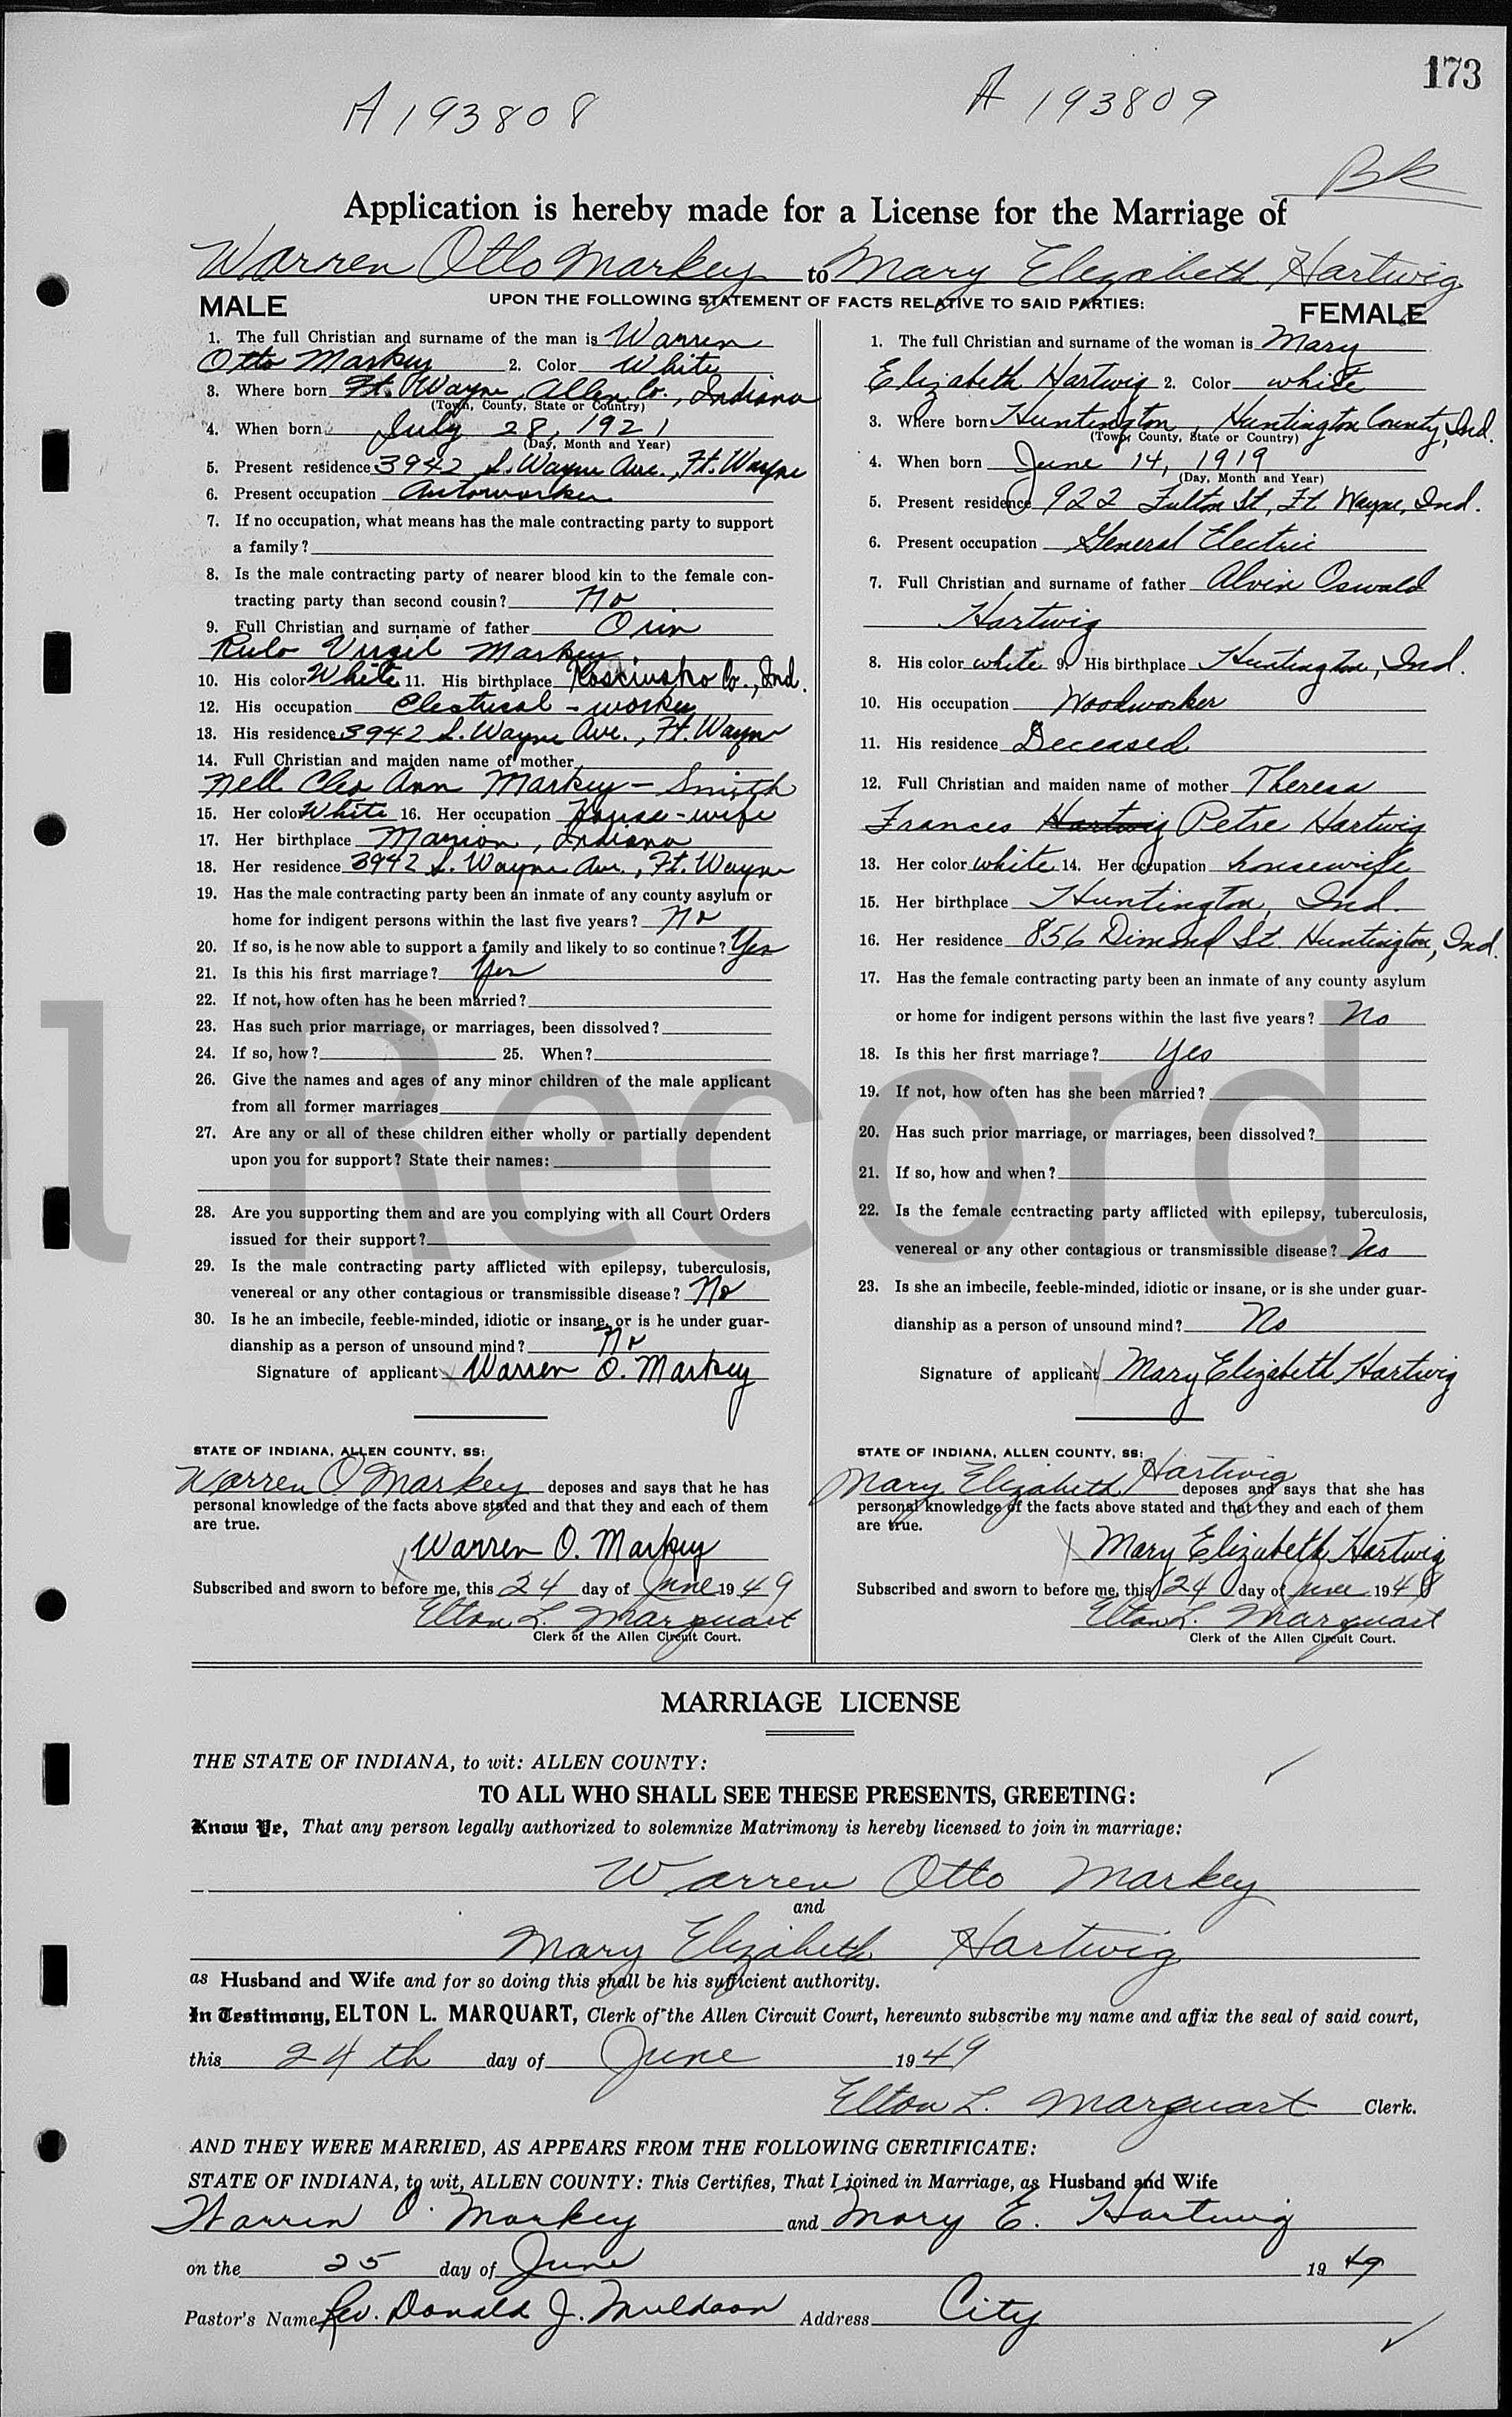 173
A193808
A193809
BK
Application is hereby made for a License for the Marriage of
Warren Otto Markey to Mary Elizabeth Hartwig
UPON THE FOLLOWING STATEMENT OF FACTS RELATIVE TO SAID PARTIES:
MALE
1. The full Christian and surname of the man is Warren
Otto Markey 2. Color White
3. Where born Ft. Wayne, Allen Co., Indiana
(Town, County, State or Country)
4. When born July 28, 1921
(Day, Month and Year)
5. Present residence 3942 S. Wayne Ave., Ft. Wayne
6. Present occupation Autoworker
7. If no occupation, what means has the male contracting party to support
a family?
8. Is the male contracting party of nearer blood kin to the female con-
tracting party than second cousin? No
9. Full Christian and surname of father Orin
Rulo Virgil Markey
10. His color White 11. His birthplace Kosciusko Co., Ind.
12. His occupation Electrical - worker
13. His residence 3942 S. Wayne Ave., Ft. Wayne
14. Full Christian and maiden name of mother
Nell Cleo Ann Markey - Smith
15. Her color White 16. Her occupation House-wife
17. Her birthplace Marion, Indiana
18. Her residence 3942 S. Wayne Ave., Ft. Wayne
19. Has the male contracting party been an inmate of any county asylum or
home for indigent persons within the last five years? No
20. If so, is he now able to support a family and likely to so continue? Yes
21. Is this his first marriage? Yes
22. If not, how often has he been married?
23. Has such prior marriage, or marriages, been dissolved?
24. If so, how? 25. When?
26. Give the names and ages of any minor children of the male applicant
from all former marriages
27. Are any or all of these children either wholly or partially dependent
upon you for support? State their names:
28. Are you supporting them and are you complying with all Court Orders
issued for their support?
29. Is the male contracting party afflicted with epilepsy, tuberculosis,
venereal or any other contagious or transmissible disease? No
30. Is he an imbecile, feeble-minded, idiotic or insane, or is he under guar-
dianship as a person of unsound mind? No
Signature of applicant x Warren O. Markey
STATE OF INDIANA, ALLEN COUNTY, SS:
Warren O Markey deposes and says that he has
personal knowledge of the facts above stated and that they and each of them
are true.
x Warren O. Markey
Subscribed and sworn to before me, this 24 day of June 1949
Elton L. Marquart
Clerk of the Allen Circuit Court.
FEMALE
1. The full Christian and surname of the woman is Mary
Elizabeth Hartwig 2. Color white
3. Where born Huntington, Huntington County, Ind.
(Town, County, State or Country)
4. When born June 14, 1919
(Day, Month and Year)
5. Present residence 922 Fulton St, Ft Wayne, Ind.
6. Present occupation General Electric
7. Full Christian and surname of father Alvin Oswald
Hartwig
8. His color white 9. His birthplace Huntington, Ind.
10. His occupation Woodworker
11. His residence Deceased
12. Full Christian and maiden name of mother Theresa
Frances Hartwig Petre Hartwig
13. Her color white 14. Her occupation housewife
15. Her birthplace Huntington, Ind.
16. Her residence 856 Dimond St. Huntington, Ind.
17. Has the female contracting party been an inmate of any county asylum
or home for indigent persons within the last five years? No
18. Is this her first marriage? Yes
19. If not, how often has she been married?
20. Has such prior marriage, or marriages, been dissolved?
21. If so, how and when?
22. Is the female contracting party afflicted with epilepsy, tuberculosis,
venereal or any other contagious or transmissible disease? No
23. Is she an imbecile, feeble-minded, idiotic or insane, or is she under guar-
dianship as a person of unsound mind? No
Signature of applicant x Mary Elizabeth Hartwig
STATE OF INDIANA, ALLEN COUNTY, SS:
Mary Elizabeth Hartwig deposes and says that she has
personal knowledge of the facts above stated and that they and each of them
are true.
x Mary Elizabeth Hartwig
Subscribed and sworn to before me, this 24 day of June 1949
Elton L. Marquart
Clerk of the Allen Circuit Court.
l Record
MARRIAGE LICENSE
THE STATE OF INDIANA, to wit: ALLEN COUNTY:
TO ALL WHO SHALL SEE THESE PRESENTS, GREETING:
Know Ye, That any person legally authorized to solemnize Matrimony is hereby licensed to join in marriage:
Warren Otto Markey
and
Mary Elizabeth Hartwig
as Husband and Wife and for so doing this shall be his sufficient authority.
In Testimony, ELTON L. MARQUART, Clerk of the Allen Circuit Court, hereunto subscribe my name and affix the seal of said court,
this 24th day of June 1949
Elton L. Marquart Clerk.
AND THEY WERE MARRIED, AS APPEARS FROM THE FOLLOWING CERTIFICATE:
STATE OF INDIANA, to wit, ALLEN COUNTY: This Certifies, That I joined in Marriage, as Husband and Wife
Warren O. Markey and Mary E. Hartwig
on the 25 day of June 1949
Pastor's Name Rev. Donald J. Muldoon Address City